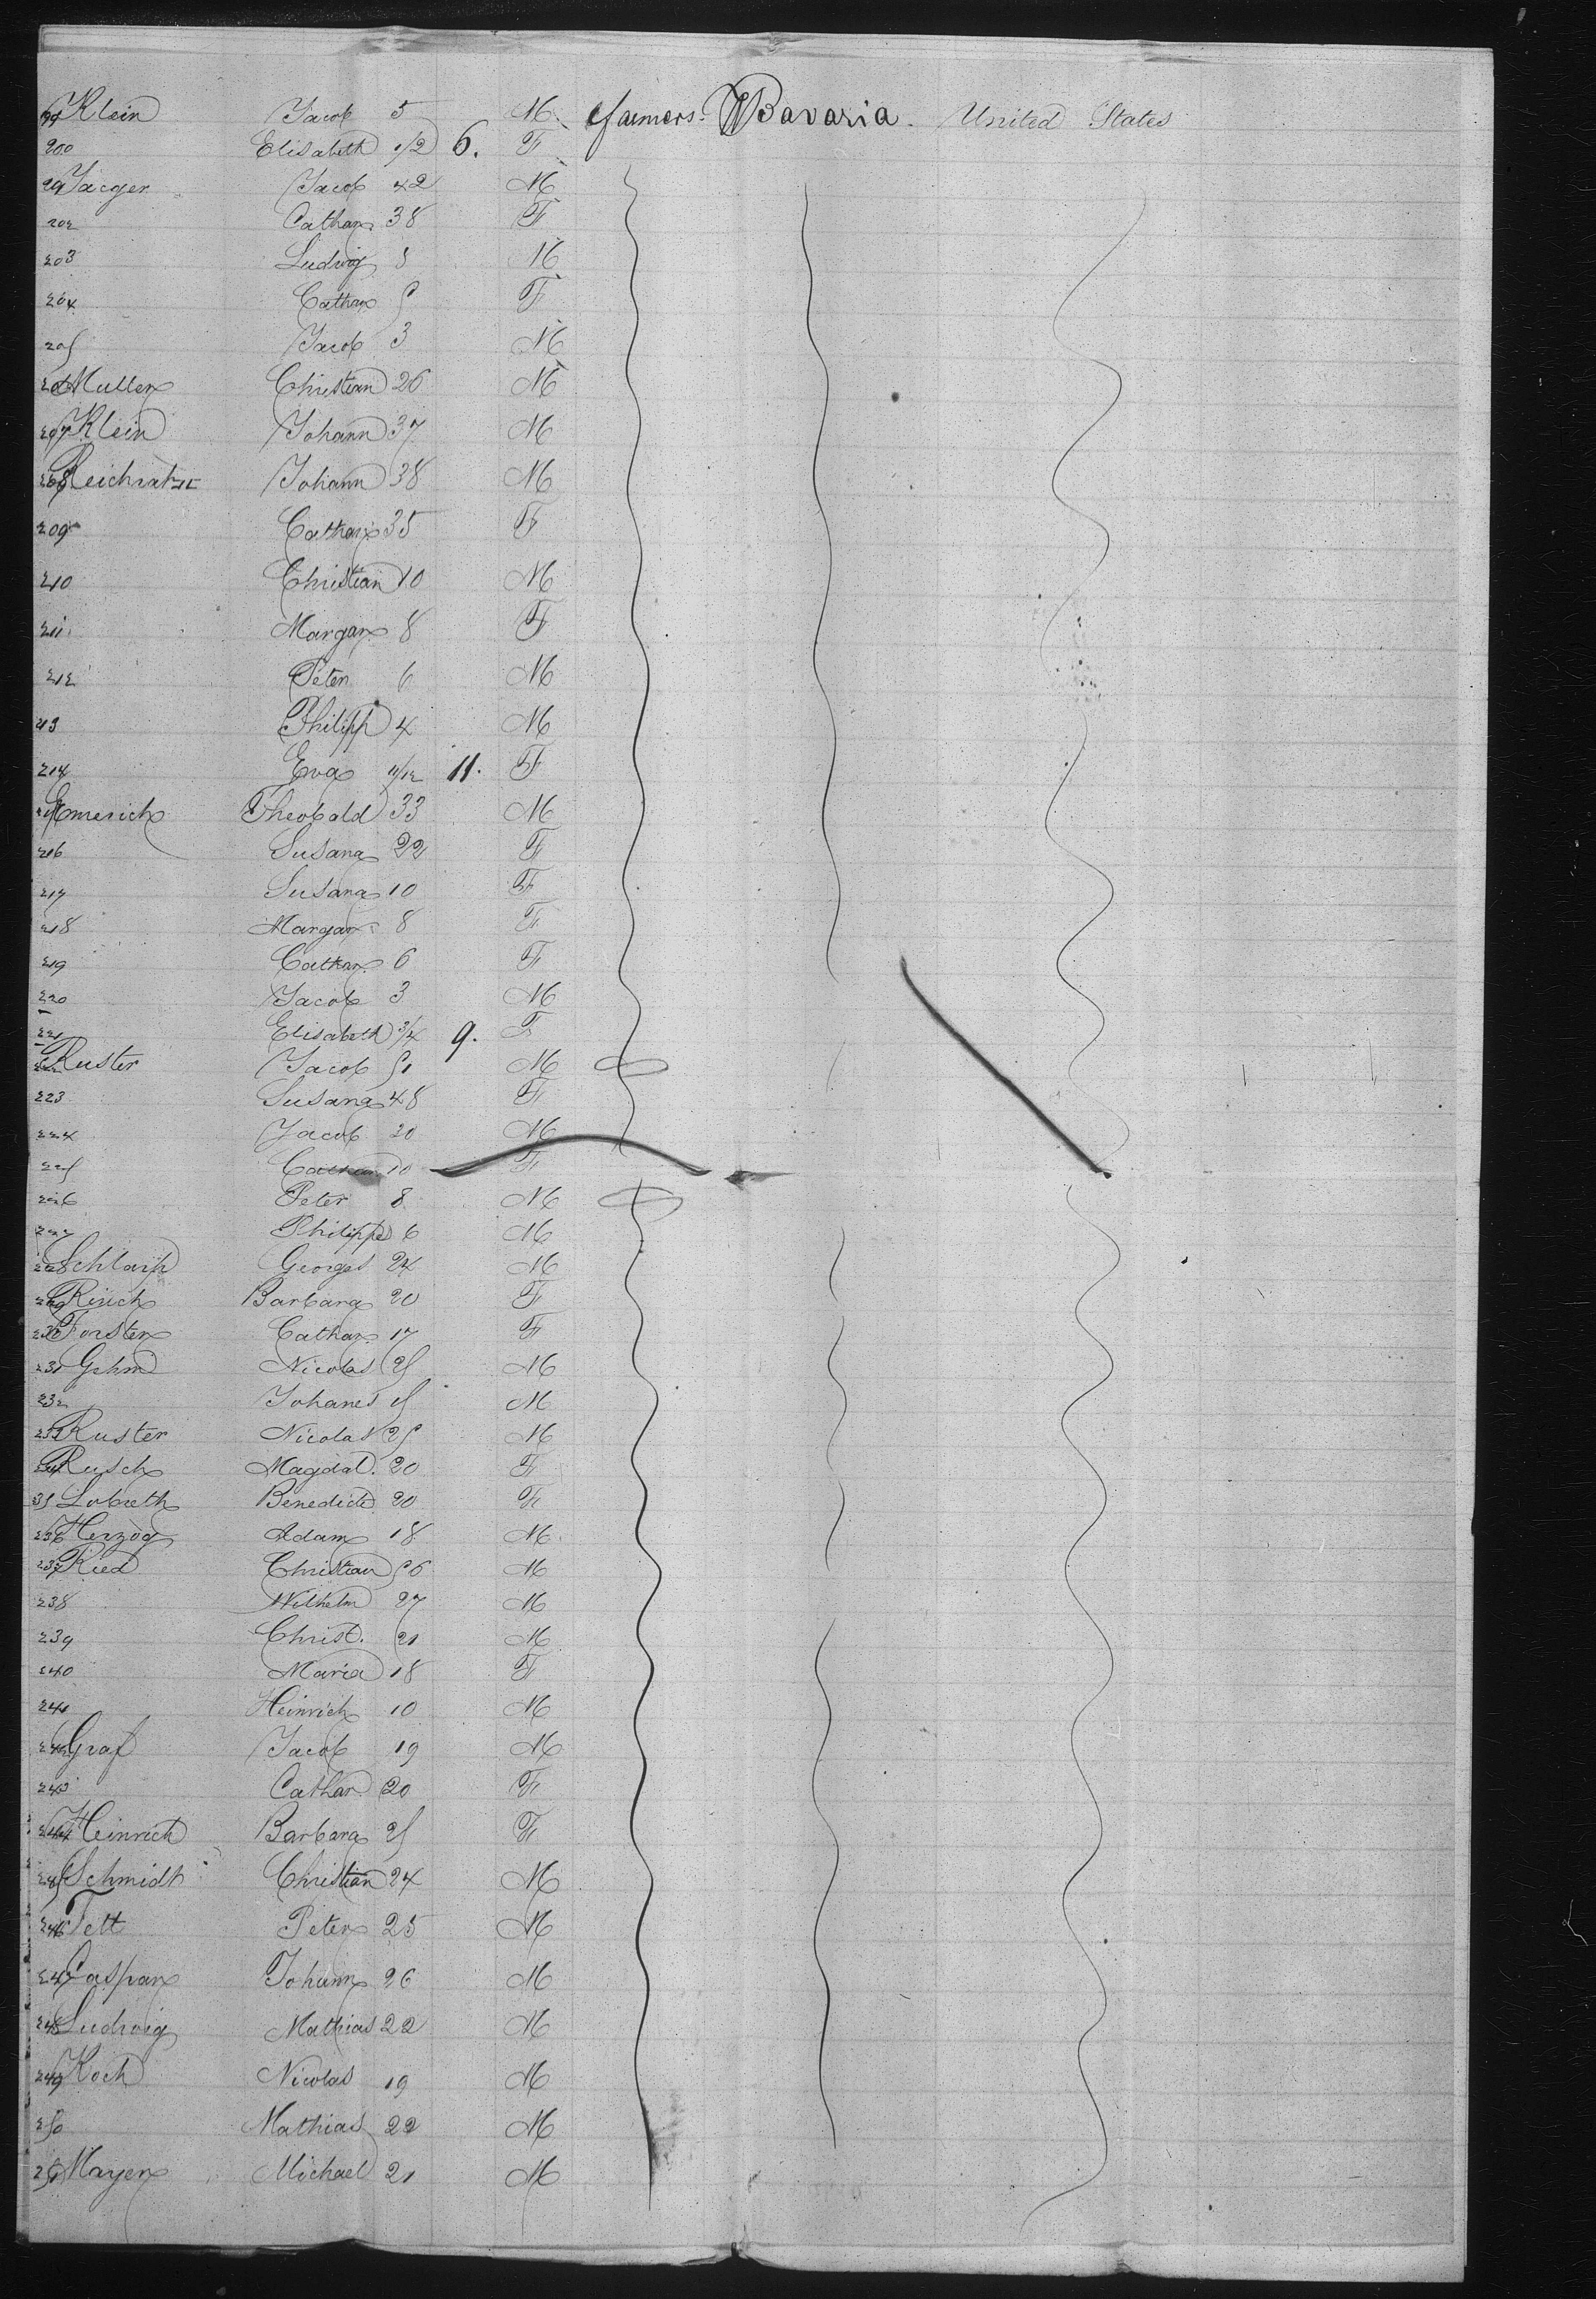 199 Klein Jacob 5 M. farmers. Bavaria. United States
200 Elisabeth 1/2 6. F
201 Jaeger Jacob 42 M
202 Cathar. 38 F
203 Ludwig 8 M
204 Cathar 5 F
205 Jacob 3 M
206 Muller Christian 26 M
207 Klein Johann 37 M
208 Johann 38 M
209 Cathar 35 F
210 Christian 10 M
211 Margar 8 F
212 Peter 6 M
213 Philipp 4 M
214 Eva 11/12 11. F
215 Emerich Theobald 33 M
216 Susana 22 F
217 Susana 10 F
218 Margar 8 F
219 Cathar. 6 F
220 Jacob 3 M
221 Elisabeth 3/4 9. F
222 Ruster Jacob 51 M
223 Susana 48 F
224 Jacob 20 M
225 Cathar 10 F
226 Peter 8 M
227 Philipp 6 M
228 Schlarp Georges 24 M
229 Barbara 20 F
230 Forster Cathar. 17 F
231 Gehm Nicolas 25 M
232 Johanes M
233 Ruster Nicolas 25 M
234 Rusch Magdal. 20 F
235 Benedict 20 F
236 Herzog Adam 18 M
237 Ried Christian 56 M
238 Wilhelm 27 M
239 Christ. 21 M
240 Maria 18 F
241 Heinrich 10 M
242 Graf Jacob 19 M
243 Cathar 20 F
244 Heinrich Barbara 25 F
245 Schmidt Christian 24 M
246 Tett Peter 25 M
247 Caspar Johann 26 M
248 Ludwig Mathias 22 M
249 Koch Nicolas 19 M
250 Mathias 22 M
251 Mayer Michael 21 M